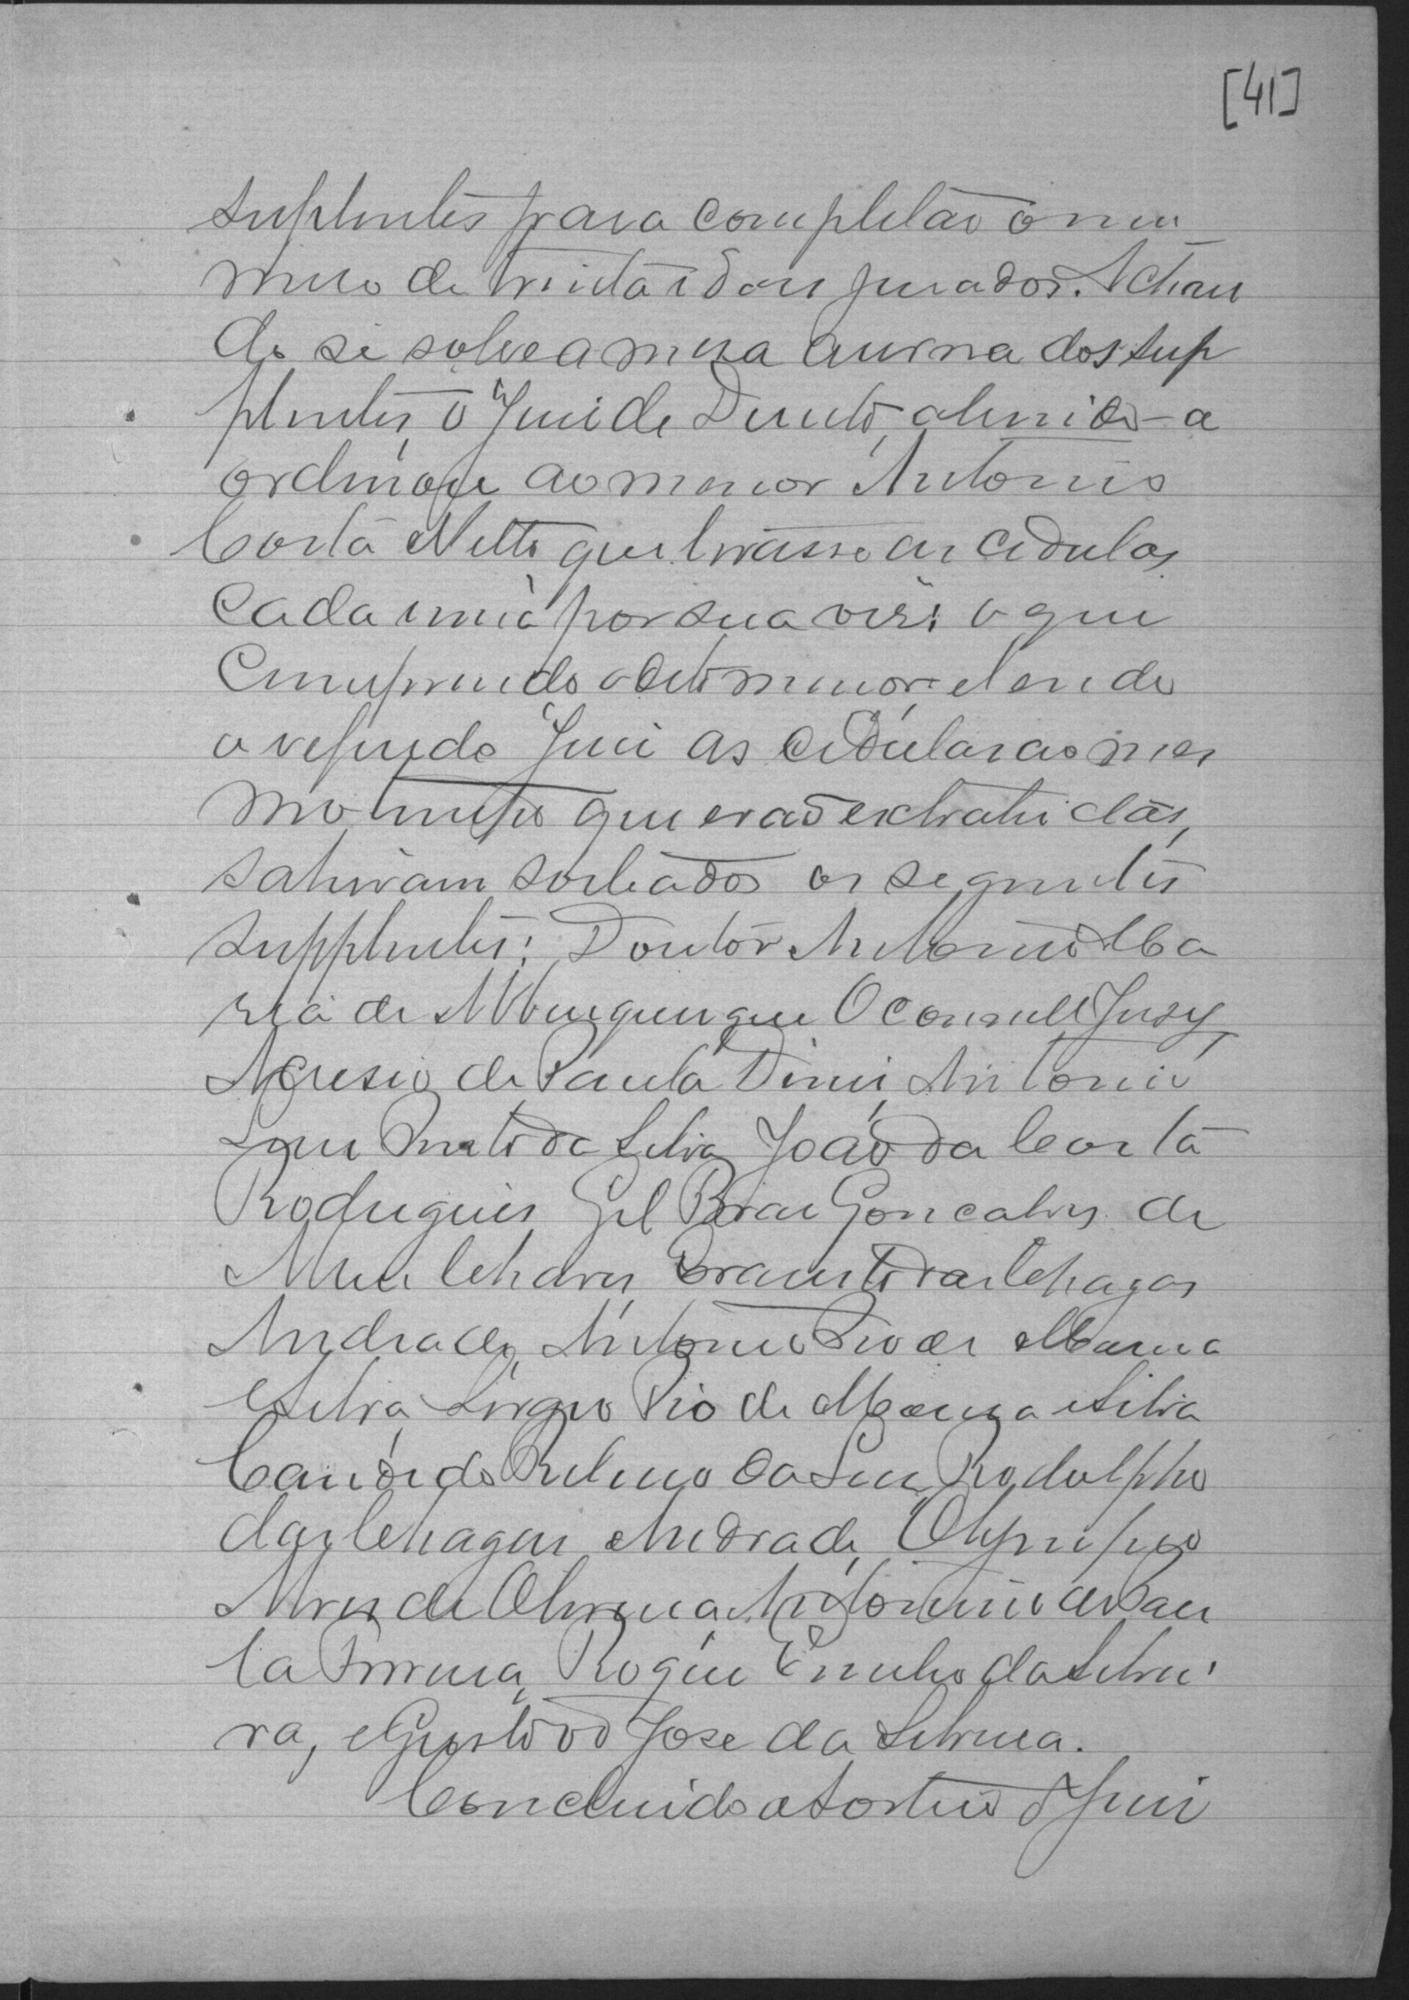 [41]
suplentes para completar o nu
mero de trinta e dous jurados. Achan
do se sobre a mesa a urna dos sup
plentes, o Juiz de Direito, abrindo-a
ordenou ao menor Antonio
Costa Netto que tirasse as cedulas
cada uma por sua vez; o que
cumprindo o dito menor, e lendo
o referido Juiz as cedulas ao mes
mo tempo que erão extrahidas,
sahiram sorteados os seguintes
supplentes: Doutor Antonio Ma
ria de Albuquerque O'Connell Jersey,
Acrisio de Paula Diniz, Antonio
Luiz Preto da Silva, João da Costa
Rodrigues, Gil Braz Gonçalves de
Chaves, das Chagas
Andrade, Antonio Pio de Moura
e Silva, Sergio Pio de Moura e Silva
Candido da Luz, Rodolpho
das Chagas Andrade, Olympio
Alves de Oliveira, Antonino de Pau
la Ferreira, Roque Emilio da Silvei
ra, e Gustavo José da Silveira.
Concluido o sorteio o Juiz